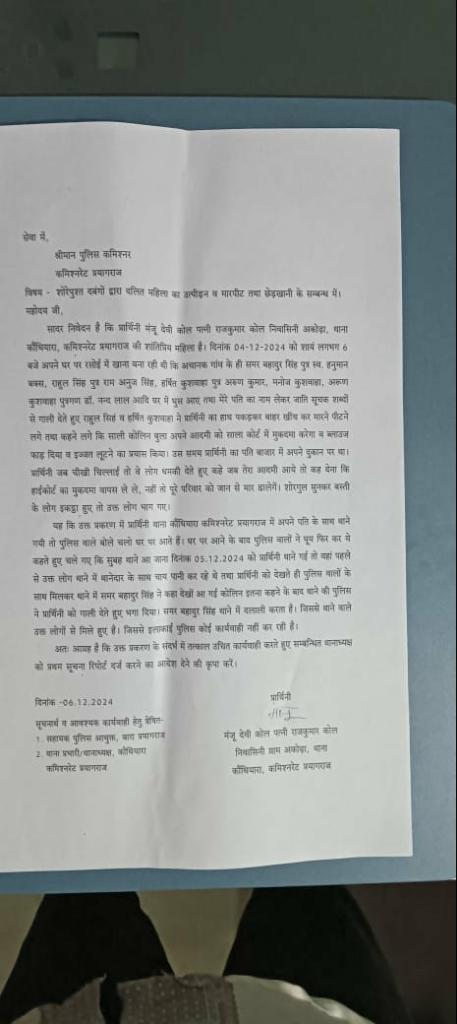 सेवा में,
श्रीमान पुलिस कमिश्नर
कमिश्नरेट प्रयागराज
विषय - शोरेपुश्त दबंगों द्वारा दलित महिला का उत्पीड़न व मारपीट तथा छेड़खानी के सम्बन्ध में।
महोदय जी,
सादर निवेदन है कि प्रार्थिनी मंजू देवी कोल पत्नी राजकुमार कोल निवासिनी अकोढ़ा, थाना
कौंधियारा, कमिश्नरेट प्रयागराज की शांतिप्रिय महिला है। दिनांक 04-12-2024 को शायं लगभग 6
बजे अपने घर पर रसोई में खाना बना रही थी कि अचानक गांव के ही समर बहादुर सिंह पुत्र स्व. हनुमान
बक्स, राहुल सिंह पुत्र राम अनुज सिंह, हर्षित कुशवाहा पुत्र अरुण कुमार, मनोज कुशवाहा, अरूण
कुशवाहा पुत्रगण डॉ. नन्द लाल आदि घर में घुस आए तथा मेरे पति का नाम लेकर जाति सूचक शब्दों
से गाली देते हुए राहुल सिहं व हर्षित कुशवाहा ने प्रार्थिनी का हाथ पकड़कर बाहर खींच कर मारने पीटने
लगे तथा कहने लगे कि साली कोलिन बुला अपने आदमी को साला कोर्ट में मुकदमा करेगा व ब्लाउज
फाड़ दिया व इज्जत लूटने का प्रयास किया। उस समय प्रार्थिनी का पति बाजार में अपने दुकान पर था।
प्रार्थिनी जब चीखी चिल्लाई तो वे लोग धमकी देते हुए कहे जब तेरा आदमी आये तो कह देना कि
हाईकोर्ट का मुकदमा वापस ले ले, नहीं तो पूरे परिवार को जान से मार डालेगें। शोरगुल सुनकर बस्ती
के लोग इकठ्ठा हुए तो उक्त लोग भाग गए।
यह कि उक्त प्रकरण में प्रार्थिनी थाना कौंधियारा कमिश्नरेट प्रयागराज में अपने पति के साथ थाने
गयी तो पुलिस वाले बोले चलो घर पर आते हैं। घर पर आने के बाद पुलिस वालों ने घूम फिर कर ये
कहते हुए चले गए कि सुबह थाने आ जाना दिनांक 05.12.2024 को प्रार्थिनी थाने गई तो वहां पहले
से उक्त लोग थाने में थानेदार के साथ चाय पानी कर रहे थे तथा प्रार्थिनी को देखते ही पुलिस वालों के
साथ मिलकर थाने में समर बहादुर सिंह ने कहा देखों आ गई कोलिन इतना कहने के बाद थाने की पुलिस
ने प्रार्थिनी को गाली देते हुए भगा दिया। समर बहादुर सिंह थाने में दलाली करता है। जिससे थाने वाले
उक्त लोगों से मिले हुए है। जिससे इलाकाई पुलिस कोई कार्यवाही नहीं कर रही है।
अतः आग्रह है कि उक्त प्रकरण के संदर्भ में तत्काल उचित कार्यवाही करते हुए सम्बन्धित थानाध्यक्ष
को प्रथम सूचना रिपोर्ट दर्ज करने का आदेश देने की कृपा करें।
दिनांक -06.12.2024
सूचनार्थ व आवश्यक कार्यवाही हेतु प्रेषित-
1. सहायक पुलिस आयुक्त, बारा प्रयागराज
2. थाना प्रभारी/थानाध्यक्ष, कौंधियारा
कमिश्नरेट प्रयागराज
प्रार्थिनी
मंजू देवी कोल पत्नी राजकुमार कोल
निवासिनी ग्राम अकोढ़ा, थाना
कौंधियारा, कमिश्नरेट प्रयागराज